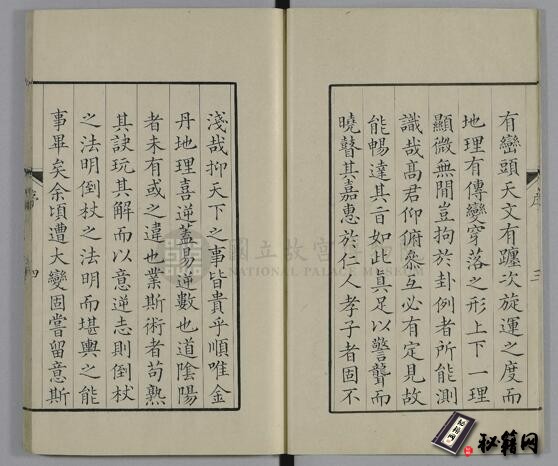 有巒頭天文有躔次旋運之度而
地理有傳變穿落之形上下一理
顯微無間豈拘於卦例者所能測
識哉高君仰俯叅互必有定見故
能暢達其旨如此眞足以警聾而
曉瞽其嘉惠於仁人孝子者固不
三
淺哉抑天下之事皆貴乎順唯金
丹地理喜逆蓋易逆數也道陰陽
者未有或之違也業斯術者苟熟
其訣玩其解而以意逆志則倒杖
之法明倒杖之法明而堪輿之能
事畢矣余頃遭大變固嘗留意斯
四
國立故宮
NATIONAL PALACE MUSEUM
秘籍网
秘籍网